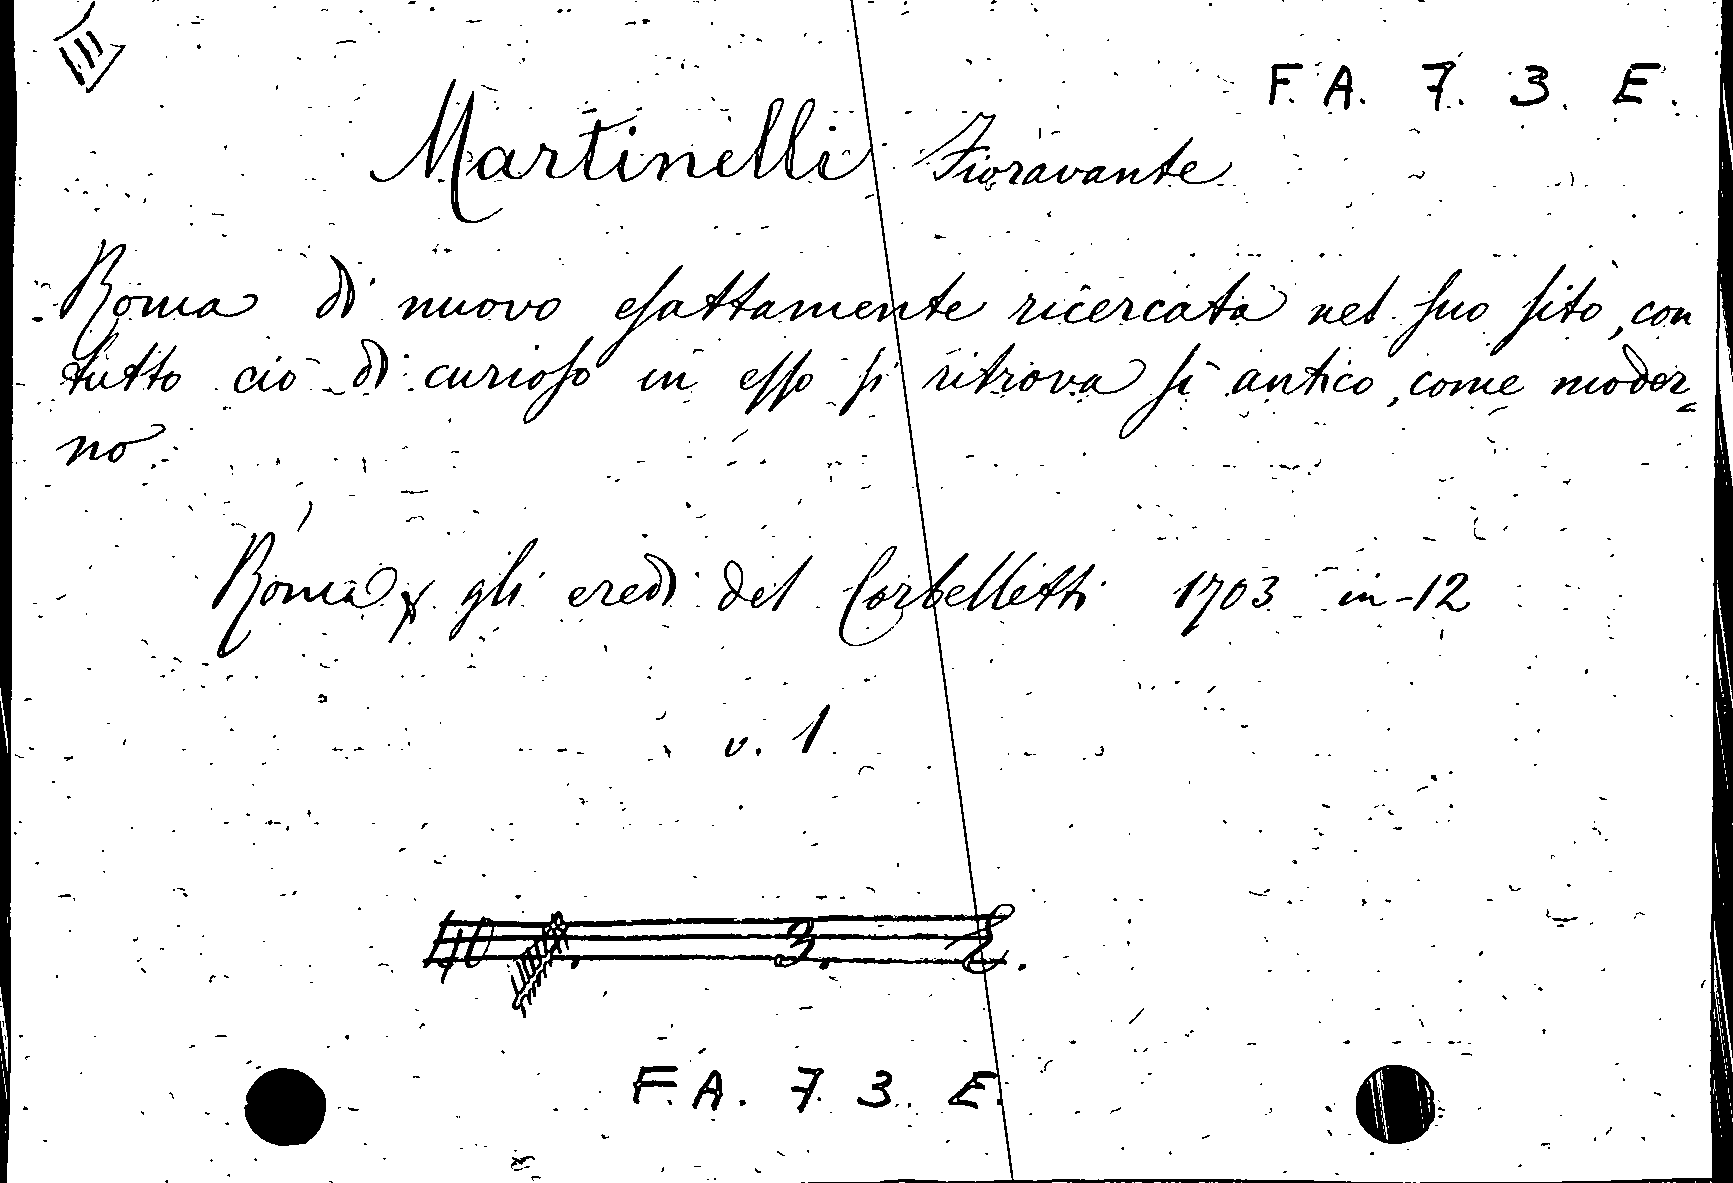 F. A. 7. 3. E.
Martinelli Fioravante
Roma di nuovo eſattamente ricercata nel ſuo ſito, con
tutto ciò di curioſo in eſſo ſi ritrova ſi antico, come moder=
no.
Roma gli eredi del Corbelletti 1703 in-12
v. 1
3. E.
F. A. 7. 3. E.